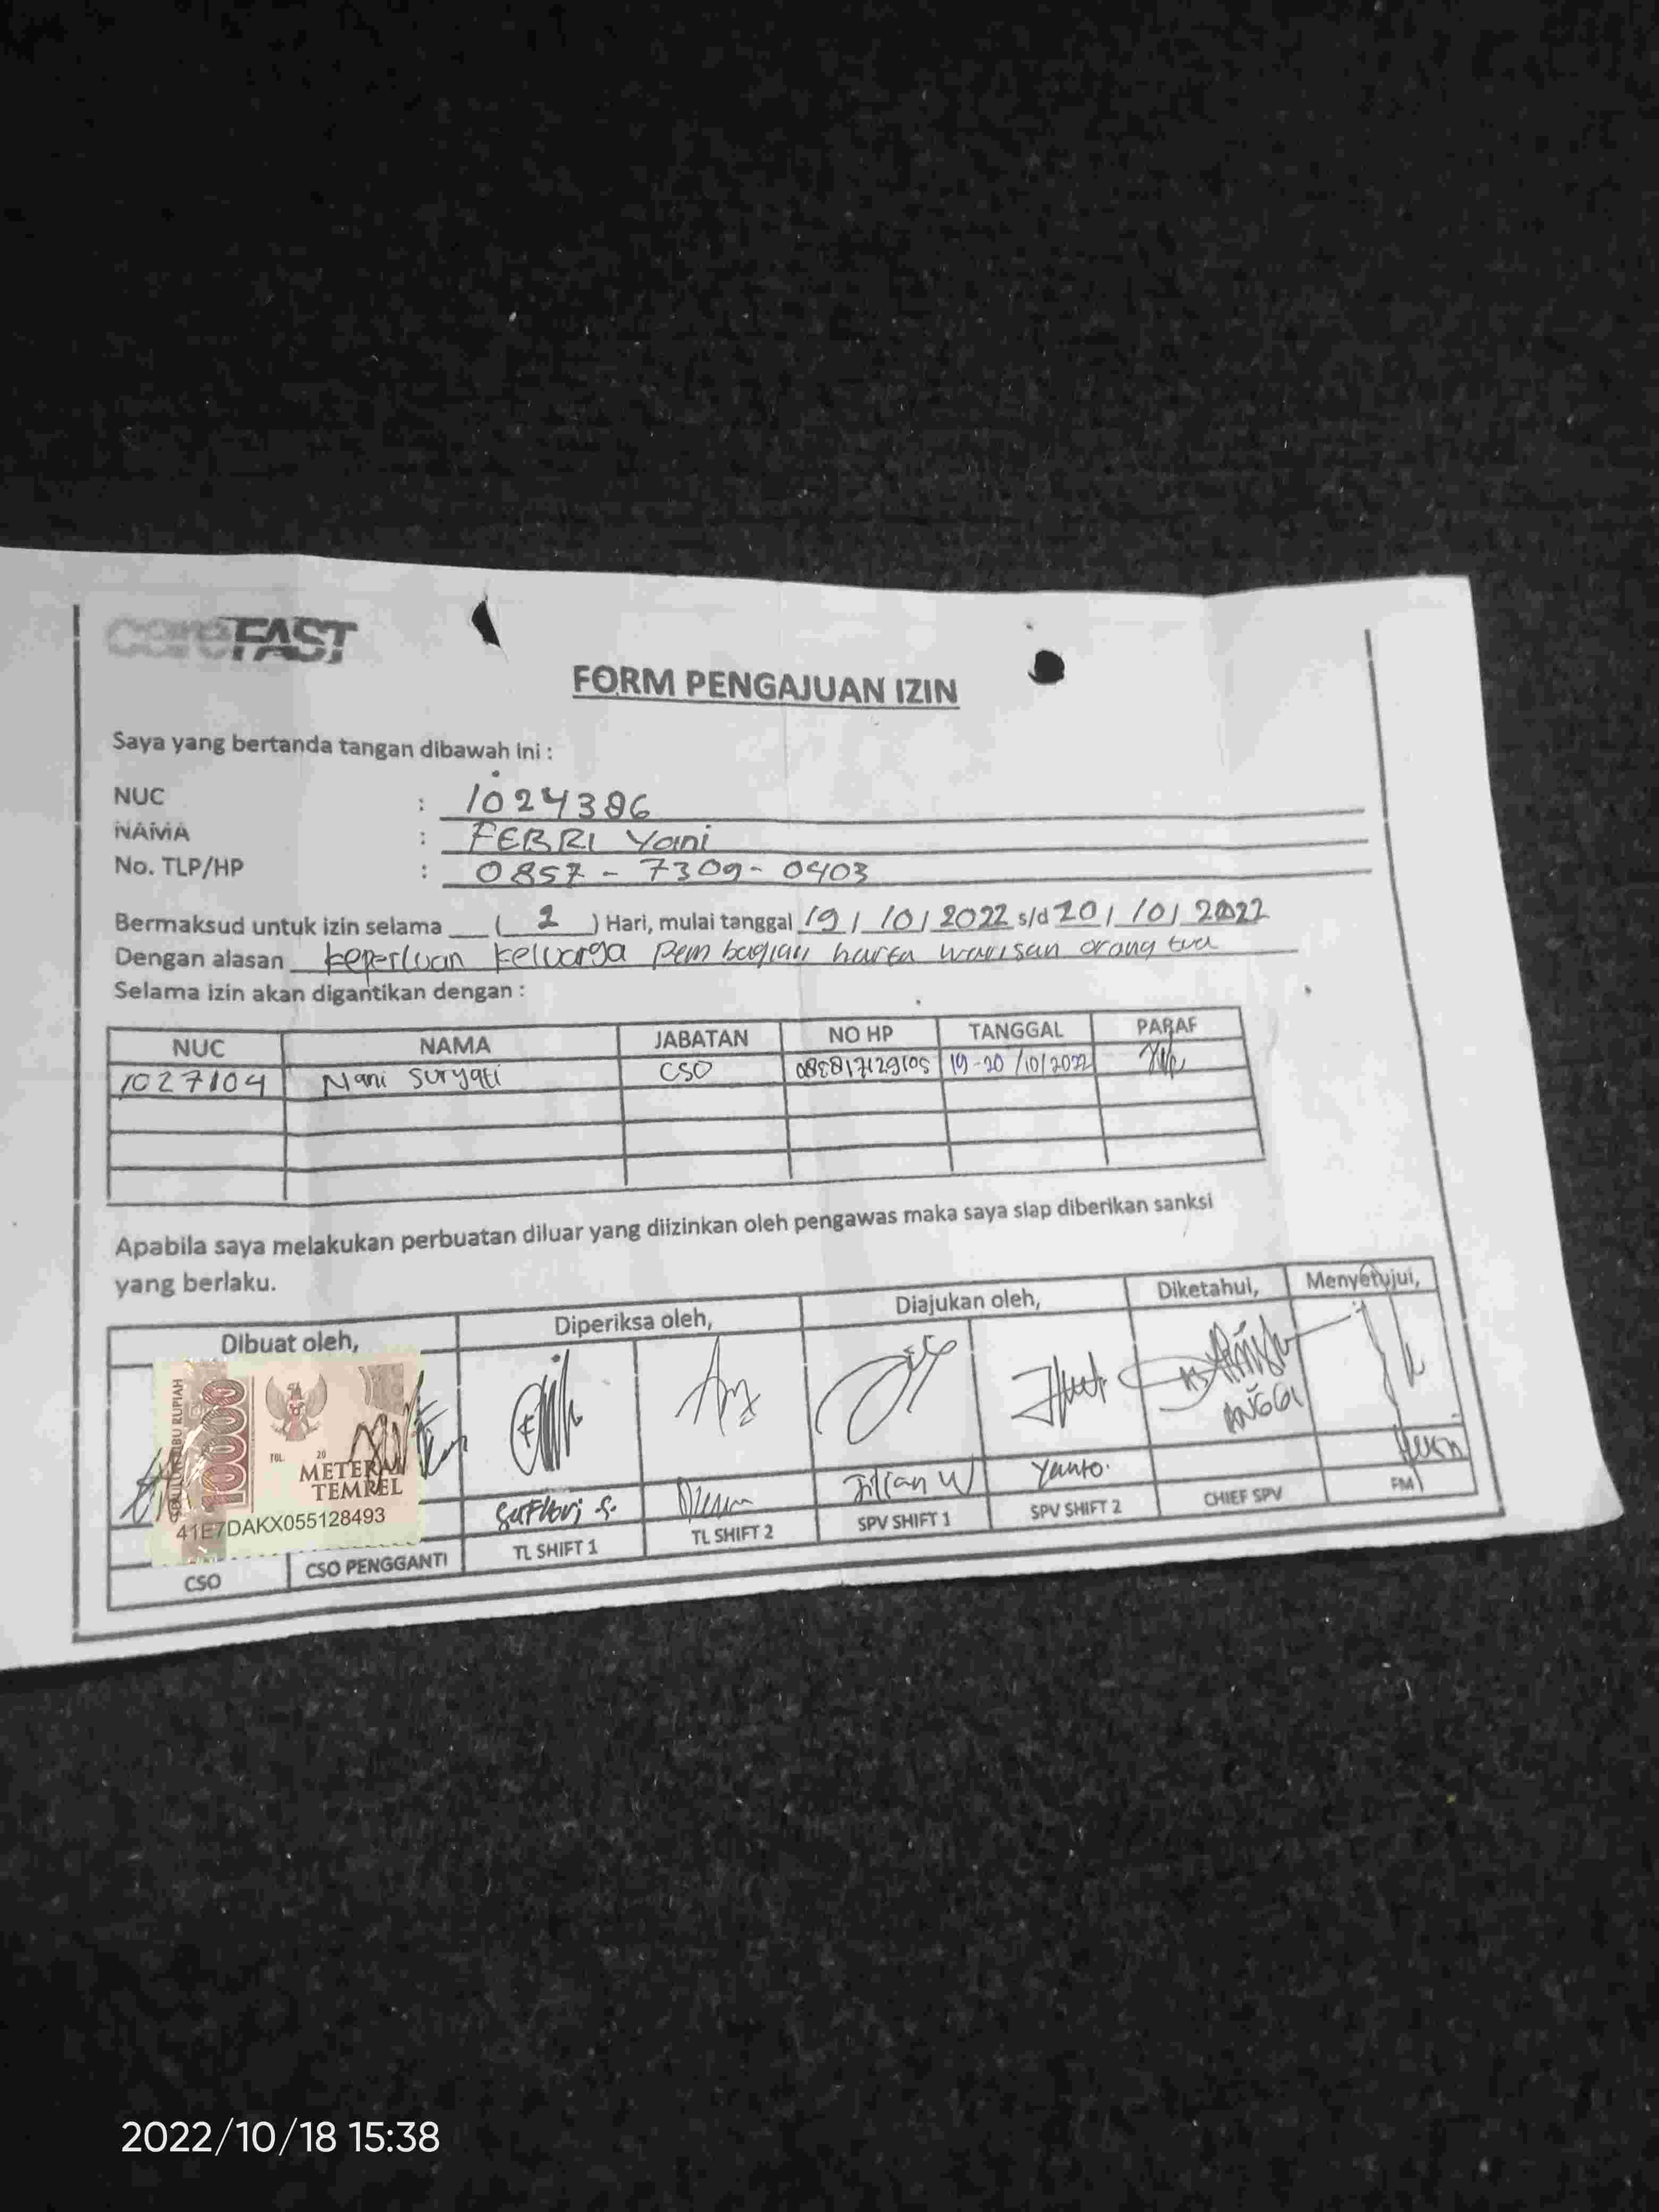 careFAST
FORM PENGAJUAN IZIN
Saya yang bertanda tangan dibawah ini :
NUC : 1024386
NAMA : FEBRI Yani
No. TLP/HP : 0857 - 7309 - 0403
Bermaksud untuk izin selama ( 2 ) Hari, mulai tanggal 19 / 10 / 2022 s/d 20 / 10 / 2022
Dengan alasan keperluan keluarga pembagian harta warisan orang tua
Selama izin akan digantikan dengan :
NUC NAMA JABATAN NO HP TANGGAL PARAF
1027104 Nani Suryati CSO 19-20 /10/2022
Apabila saya melakukan perbuatan diluar yang diizinkan oleh pengawas maka saya siap diberikan sanksi
yang berlaku.
Dibuat oleh, Diperiksa oleh, Diajukan oleh, Diketahui, Menyetujui,
10000
TGL. 20
METERAI
TEMPEL
41E7DAKX055128493
ANGGI
Jilian W Yanto.
CSO CSO PENGGANTI TL SHIFT 1 TL SHIFT 2 SPV SHIFT 1 SPV SHIFT 2 CHIEF SPV FM
2022/10/18 15:38